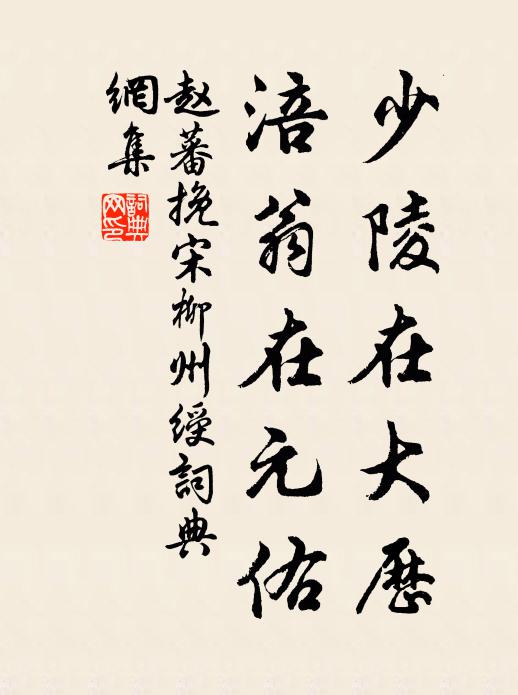 少陵在大歷
涪翁在元佑
趙蕃挽宋柳州綬詞典
網集
詞典網印